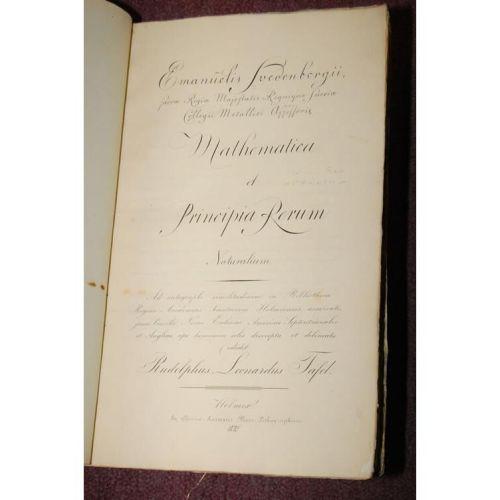 Emanuelis Svedenborgii,
sacræ Regiæ Majestatis Regnique Sueciæ
Collegii Metallici Assessoris
Mathematica
et
Principia Rerum
Naturalium
Ad autographi similitudinem in Bibliotheca
Regiæ Academiæ Scientiarum Holmiensis
jussu Novæ Ecclesiæ America Septentrionalis
et Angliæ ope luminis solis descripta et delineata
edidit
Rudolphus Leonardus Tafel.
Holmiæ